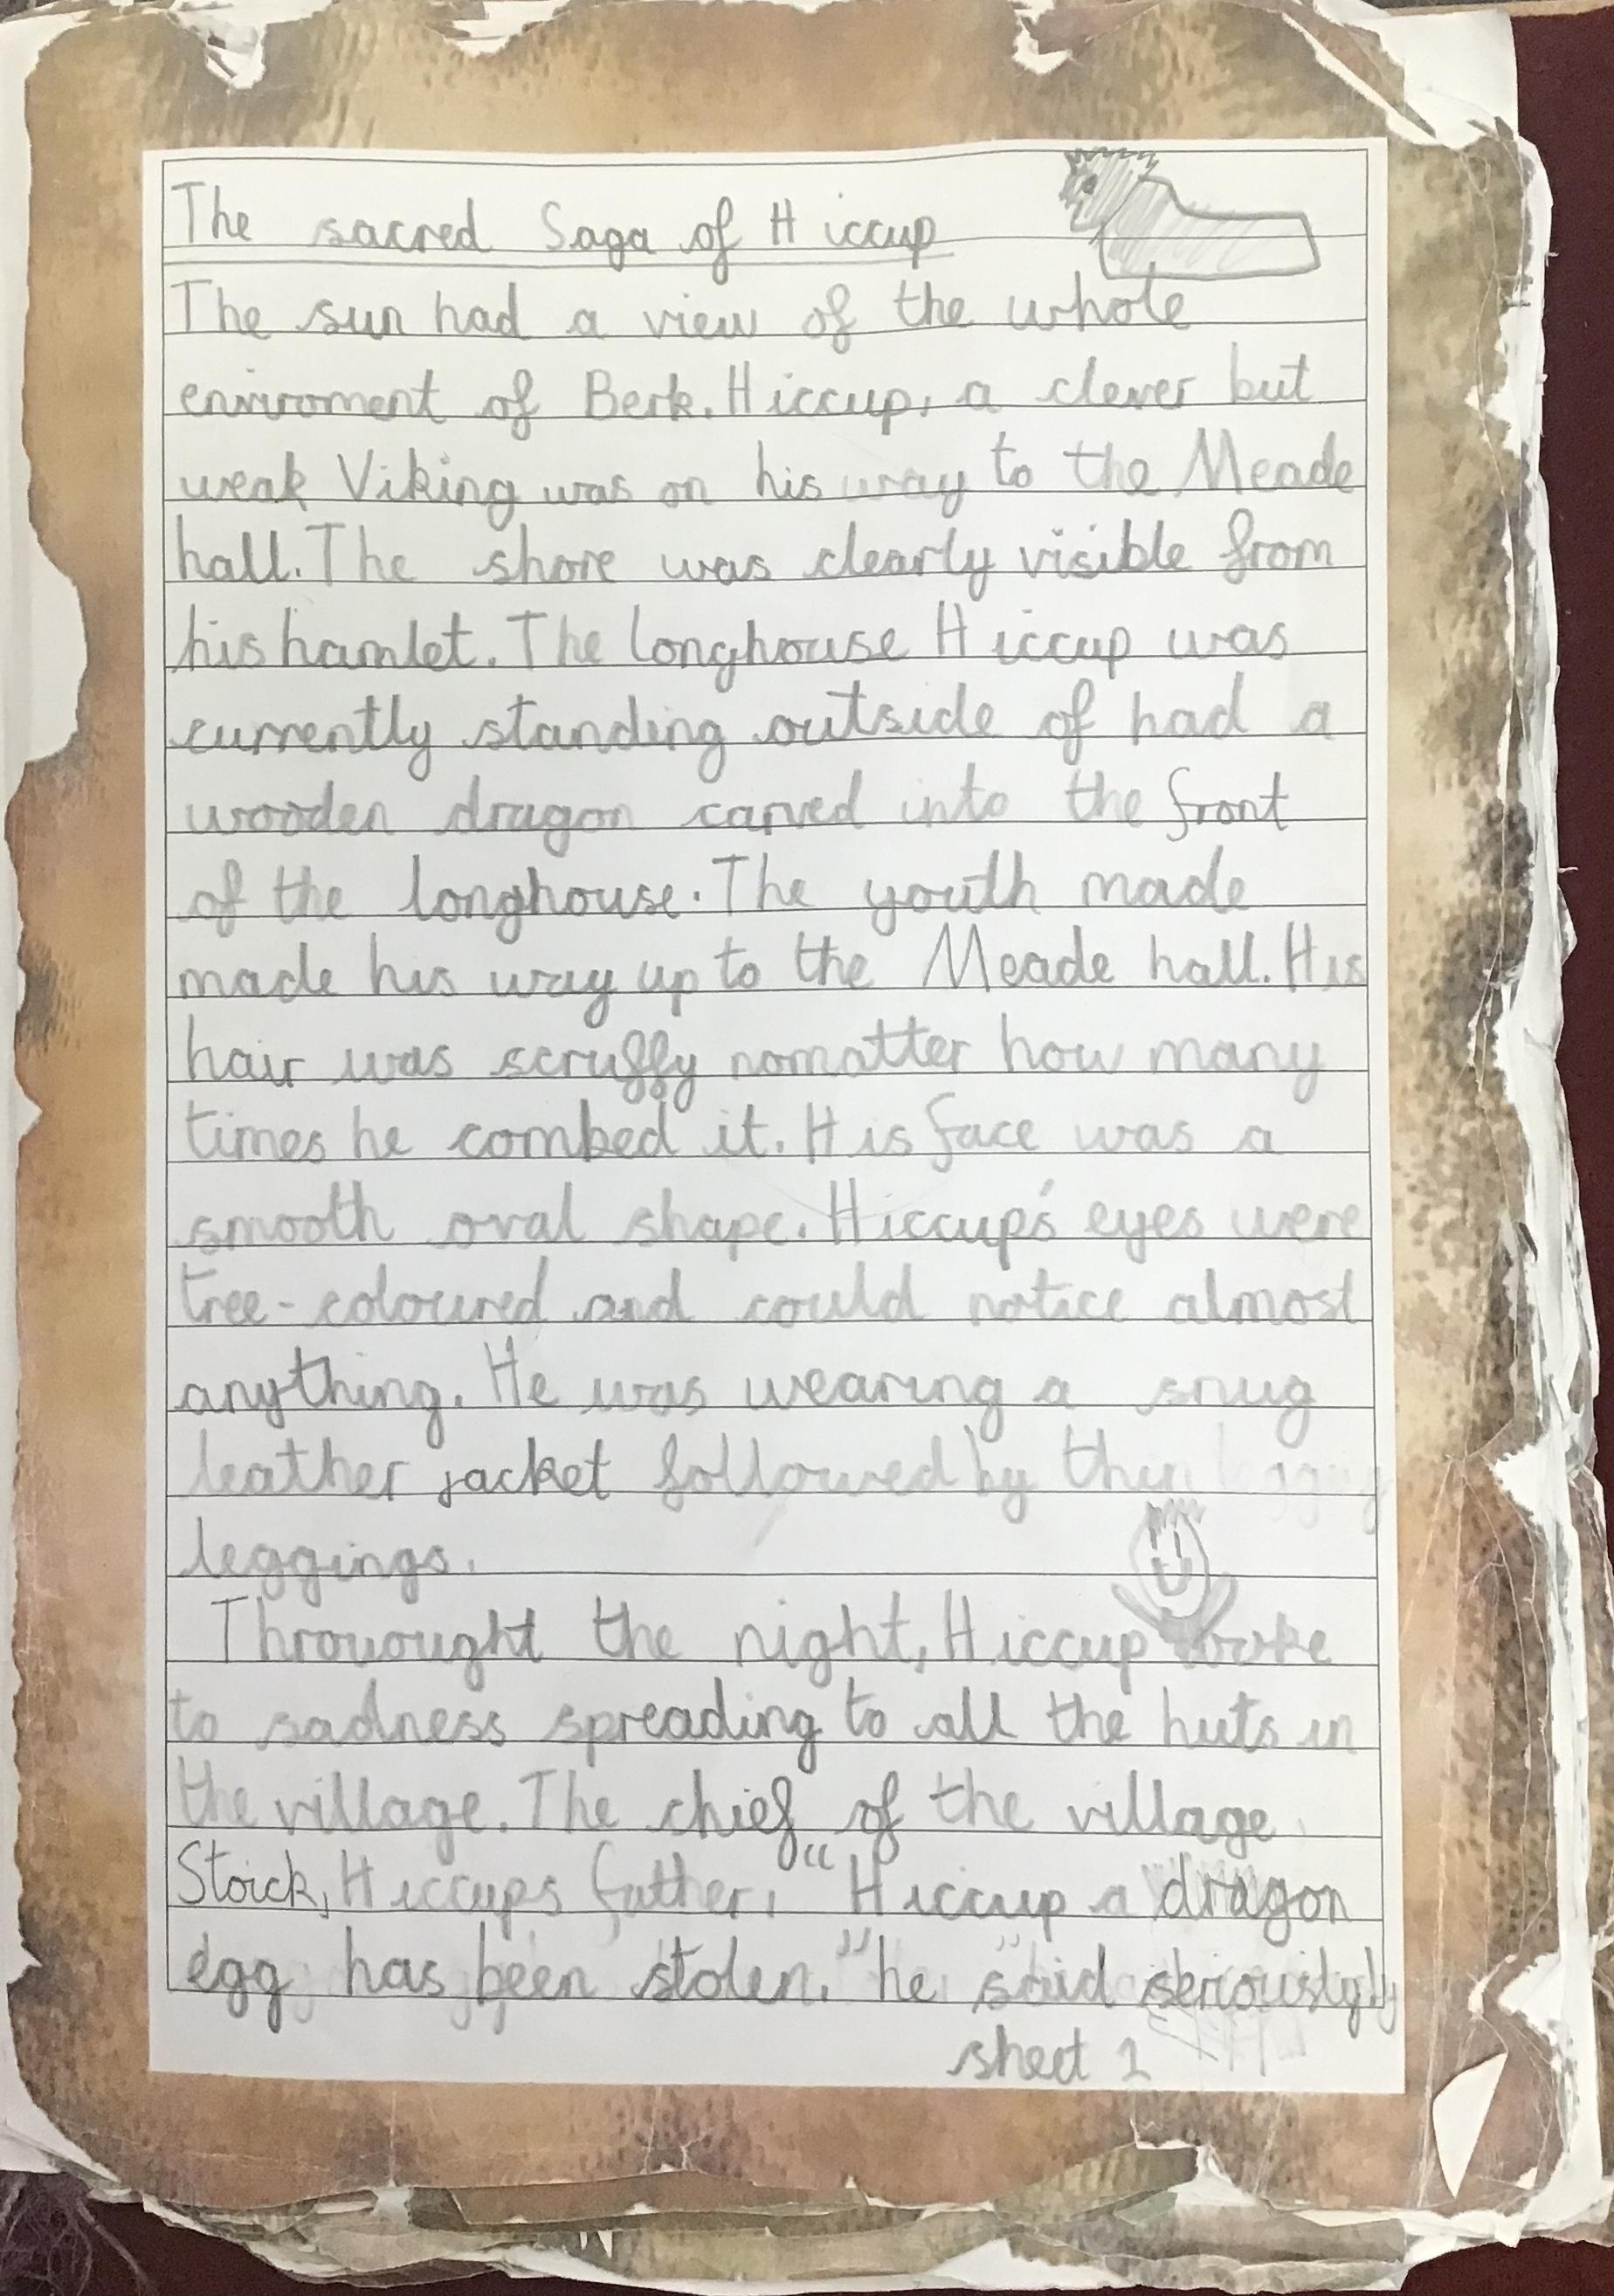 The sacred Saga of Hiccup
The sun had a view of the whole
enviroment of Berk. Hiccup, a clever but
weak Viking was on his way to the Meade
hall. The shore was clearly visible from
his hamlet. The longhouse Hiccup was
currently standing outside of had a
wooden dragon carved into the front
of the longhouse. The youth made
made his way up to the Meade hall. His
hair was scruffy nomatter how many
times he combed it. His face was a
smooth oval shape. Hiccup's eyes were
tree-coloured and could notice almost
anything. He was wearing a snug
leather jacket followed by thin
leggings.
Throuought the night, Hiccup woke
to sadness spreading to all the huts in
the village. The chief of the village
Stoick, Hiccups father, "Hiccup a dragon
egg has been stolen." he said seriously
sheet 1